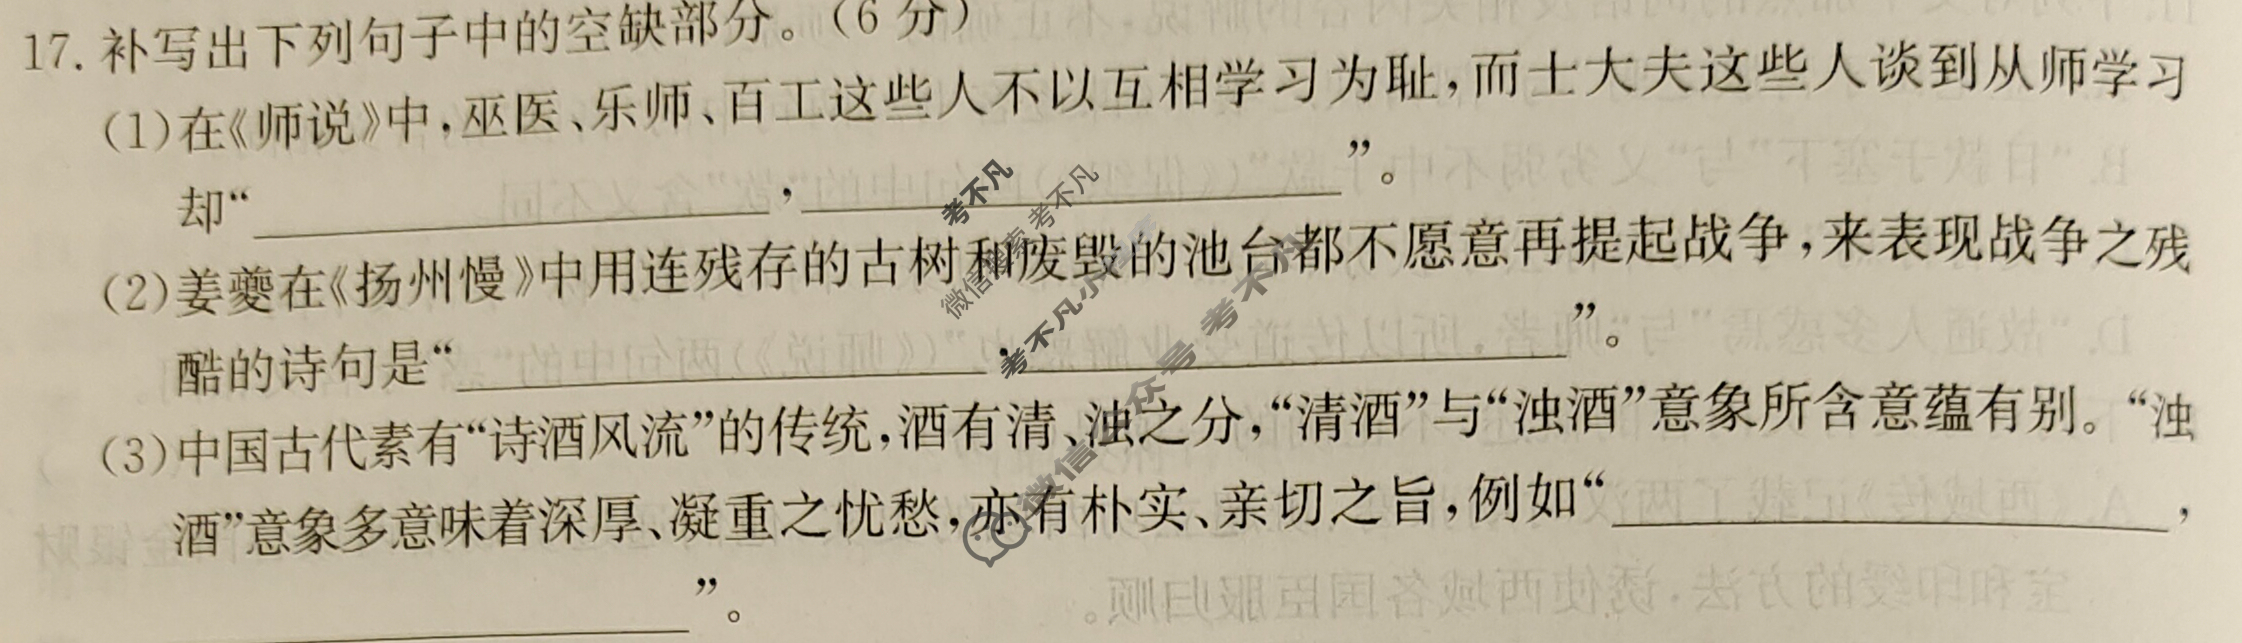 17. 补写出下列句子中的空缺部分。(6 分)
(1)在《师说》中,巫医、乐师、百工这些人不以互相学习为耻,而士大夫这些人谈到从师学习
却“____,____”。
(2)姜夔在《扬州慢》中用连残存的古树和废毁的池台都不愿意再提起战争,来表现战争之残
酷的诗句是“____,____”。
(3)中国古代素有“诗酒风流”的传统,酒有清、浊之分,“清酒”与“浊酒”意象所含意蕴有别。“浊
酒”意象多意味着深厚、凝重之忧愁,亦有朴实、亲切之旨,例如“____,
____”。
考不凡
微信搜索 考不凡
考不凡小
微信公众号 考不凡